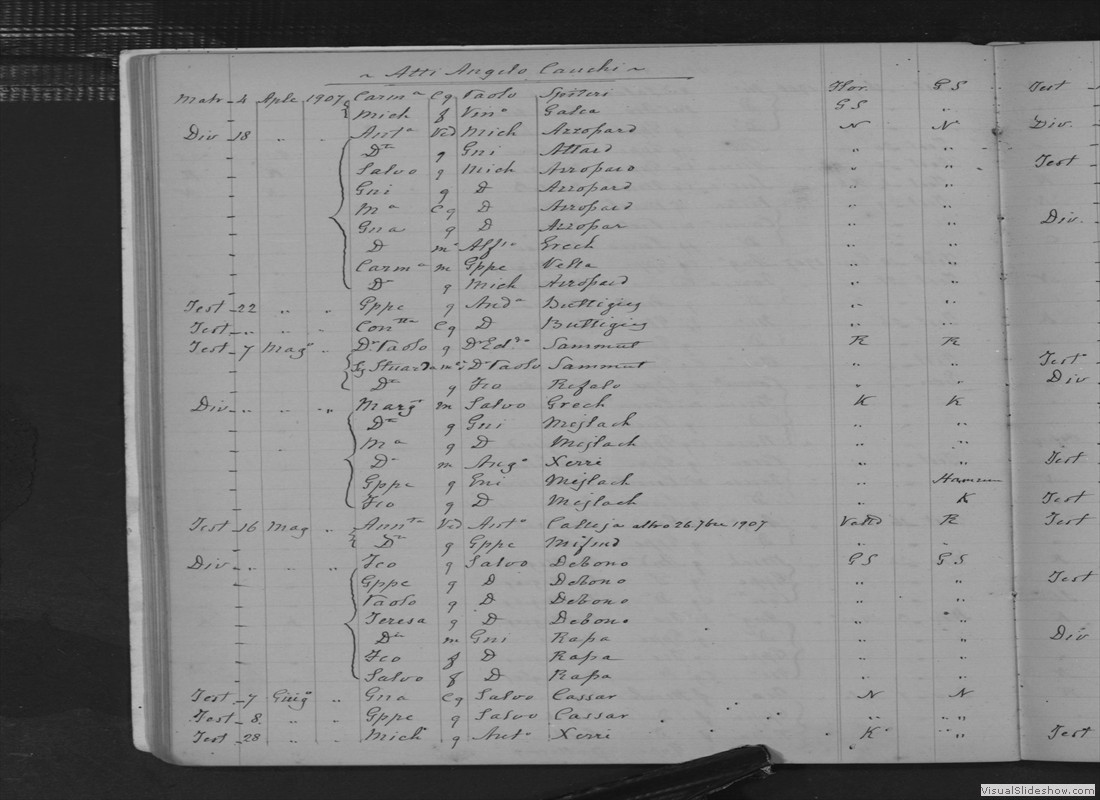 ~ Atti Angelo Cauchi ~
Matr - 4 Aple 1907 Carmª Cq Paolo Spiteri Flor. GS
Mich f Vinº Galea GS
Div - 18 " " Antª Ved Mich Azzopard N N
Dª q Gni Attard " "
Salvo q Mich Azzopard " "
Gni q D Azzopard " "
Mª Cq D Azzopard " "
Gna q D Azzopar " "
D mº Alfº Grech " "
Carmª m Gppe Vella " "
Dª q Mich Azzopard " "
Test - 22 " " Gppe q Andª Buttigieg " "
Test - " " " Conttª Cq D Buttigieg " "
Test - 7 Magº " Dr Paolo q Dr Edº Sammut R R
mº Dr Paolo Sammut " "
Dª q Fco Refalo " "
Div - " " " Margª m Salvo Grech K K
Dª q Gni Mejlach " "
Mª q D Mejlach " "
Dª m Angº Xerri " "
Gppe q Gni Mejlach " Hamrun
Fco q D Mejlach " K
Test - 16 Mag " Anntª Ved Antº Calleja altro 26.7bre 1907 Vallª R
Dª q Gppe Mifsud " "
Div - " " " Fco q Salvo Debono GS GS
Gppe q D Debono " "
Paolo q D Debono " "
Teresa q D Debono " "
Dª m Gni Rapa " "
Fco f D Rapa " "
Salvo f D Rapa " "
Test - 7 Giugº " Gna Cq Salvo Cassar N N
Test - 8 " " Gppe q Salvo Cassar " "
Test - 28 " " Mich q Antº Xerri K "
Test
Div.
Test
Div.
Test
Div
Test
Test
Test
Test
Div
Test
VisualSlideshow.com